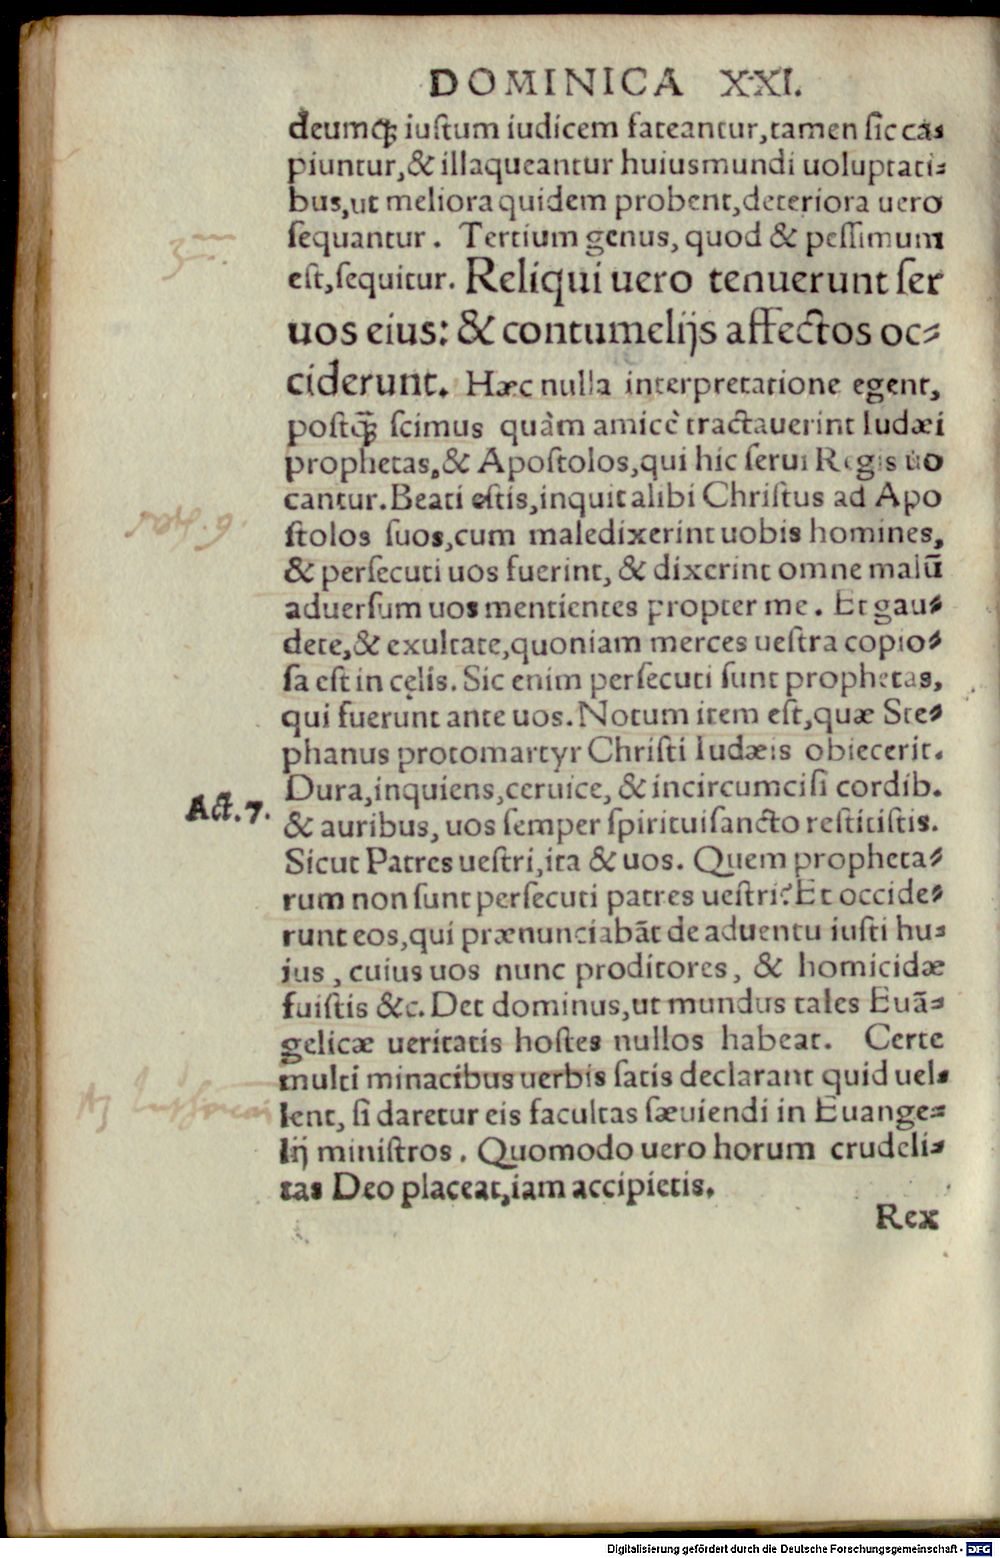 DOMINICA XXI.
deumq́; iuſtum iudicem fateantur,tamen ſic ca⸗
piuntur,& illaqueantur huiusmundi uoluptati⸗
bus,ut meliora quidem probent,deteriora uero
ſequantur. Tertium genus, quod & peſſimum
eſt,ſequitur. Reliqui uero tenuerunt ſer
uos eius: & contumelijs affectos oc⸗
ciderunt. Hæc nulla interpretatione egent,
poſtq̃; ſcimus quàm amicè tractauerint Iudæi
prophetas,& Apoſtolos,qui hic ſerui Regis uo
cantur.Beati eſtis,inquit alibi Chriſtus ad Apo
ſtolos ſuos,cum maledixerint uobis homines,
& perſecuti uos fuerint, & dixerint omne malū
aduerſum uos mentientes propter me. Et gau⸗
dete,& exultate,quoniam merces ueſtra copio⸗
ſa eſt in cęlis. Sic enim perſecuti ſunt prophetas,
qui fuerunt ante uos. Notum item eſt,quæ Ste⸗
phanus protomartyr Chriſti Iudæis obiecerit.
Dura,inquiens,ceruice, & incircumciſi cordib.
Act.7.
& auribus, uos ſemper ſpirituiſancto reſtitiſtis.
Sicut Patres ueſtri,ita & uos. Quem propheta⸗
rum non ſunt perſecuti patres ueſtri? Et occide⸗
runt eos,qui prænunciabāt de aduentu iuſti hu⸗
ius, cuius uos nunc proditores, & homicidæ
fuiſtis &c. Det dominus,ut mundus tales Euā⸗
gelicæ ueritatis hoſtes nullos habeat. Certe
multi minacibus uerbis ſatis declarant quid uel⸗
lent, ſi daretur eis facultas ſæuiendi in Euange⸗
lij miniſtros. Quomodo uero horum crudeli⸗
tas Deo placeat,iam accipietis.
Rex
Digitalisierung gefördert durch die Deutsche Forschungsgemeinschaft - DFG